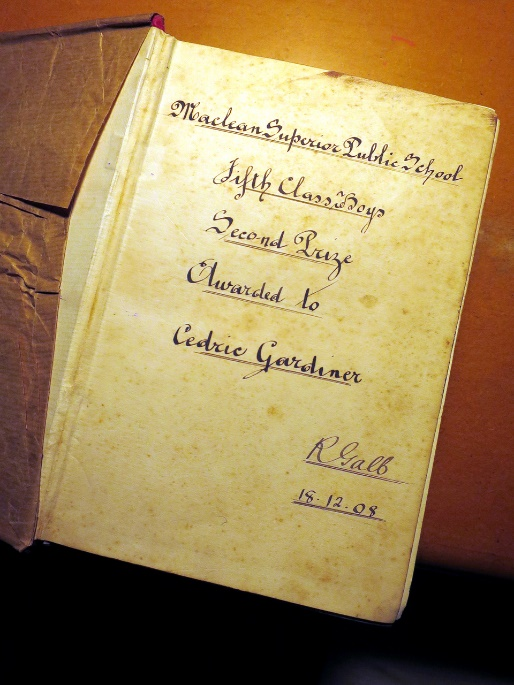 Maclean Superior Public School
Fifth Class Boys
Second Prize
Awarded to
Cedric Gardiner
R Galb
18.12.08